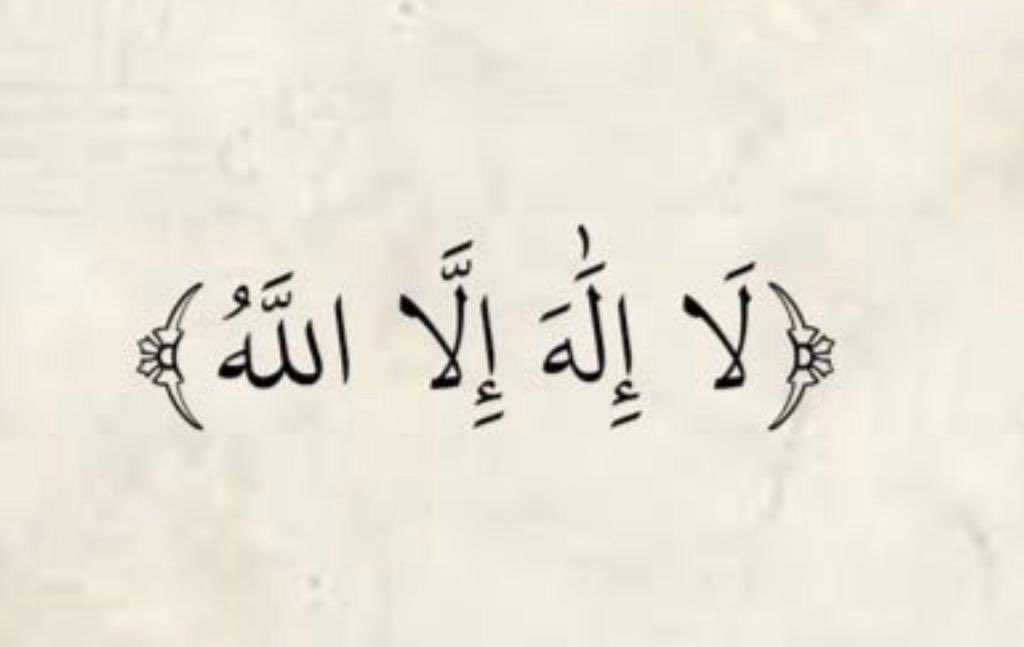 ﴿لَا إِلَٰهَ إِلَّا اللَّهُ﴾